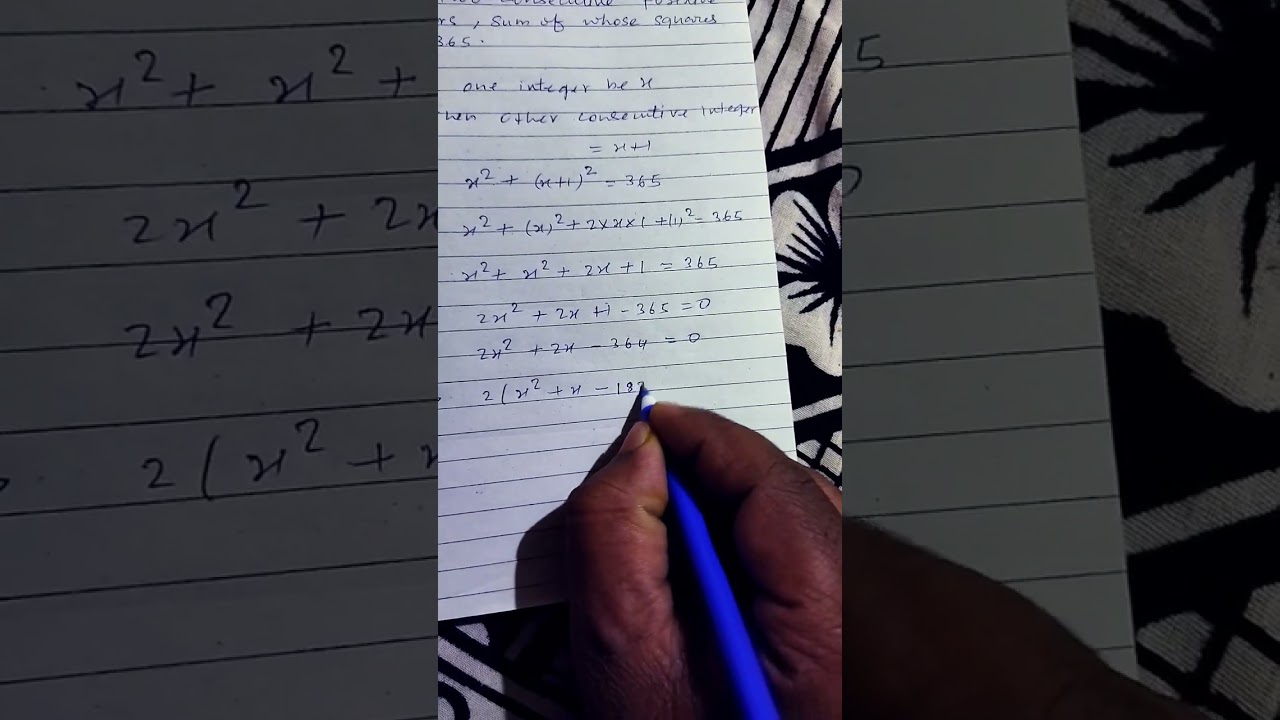 consecutive positive
rs, sum of whose squares
365.
one integer be x
hen other consecutive integer
= x+1
x² + (x+1)² = 365
x² + (x)² + 2×x×1 + (1)² = 365
x² + x² + 2x + 1 = 365
2x² + 2x + 1 - 365 = 0
2x² + 2x - 364 = 0
2(x² + x - 182